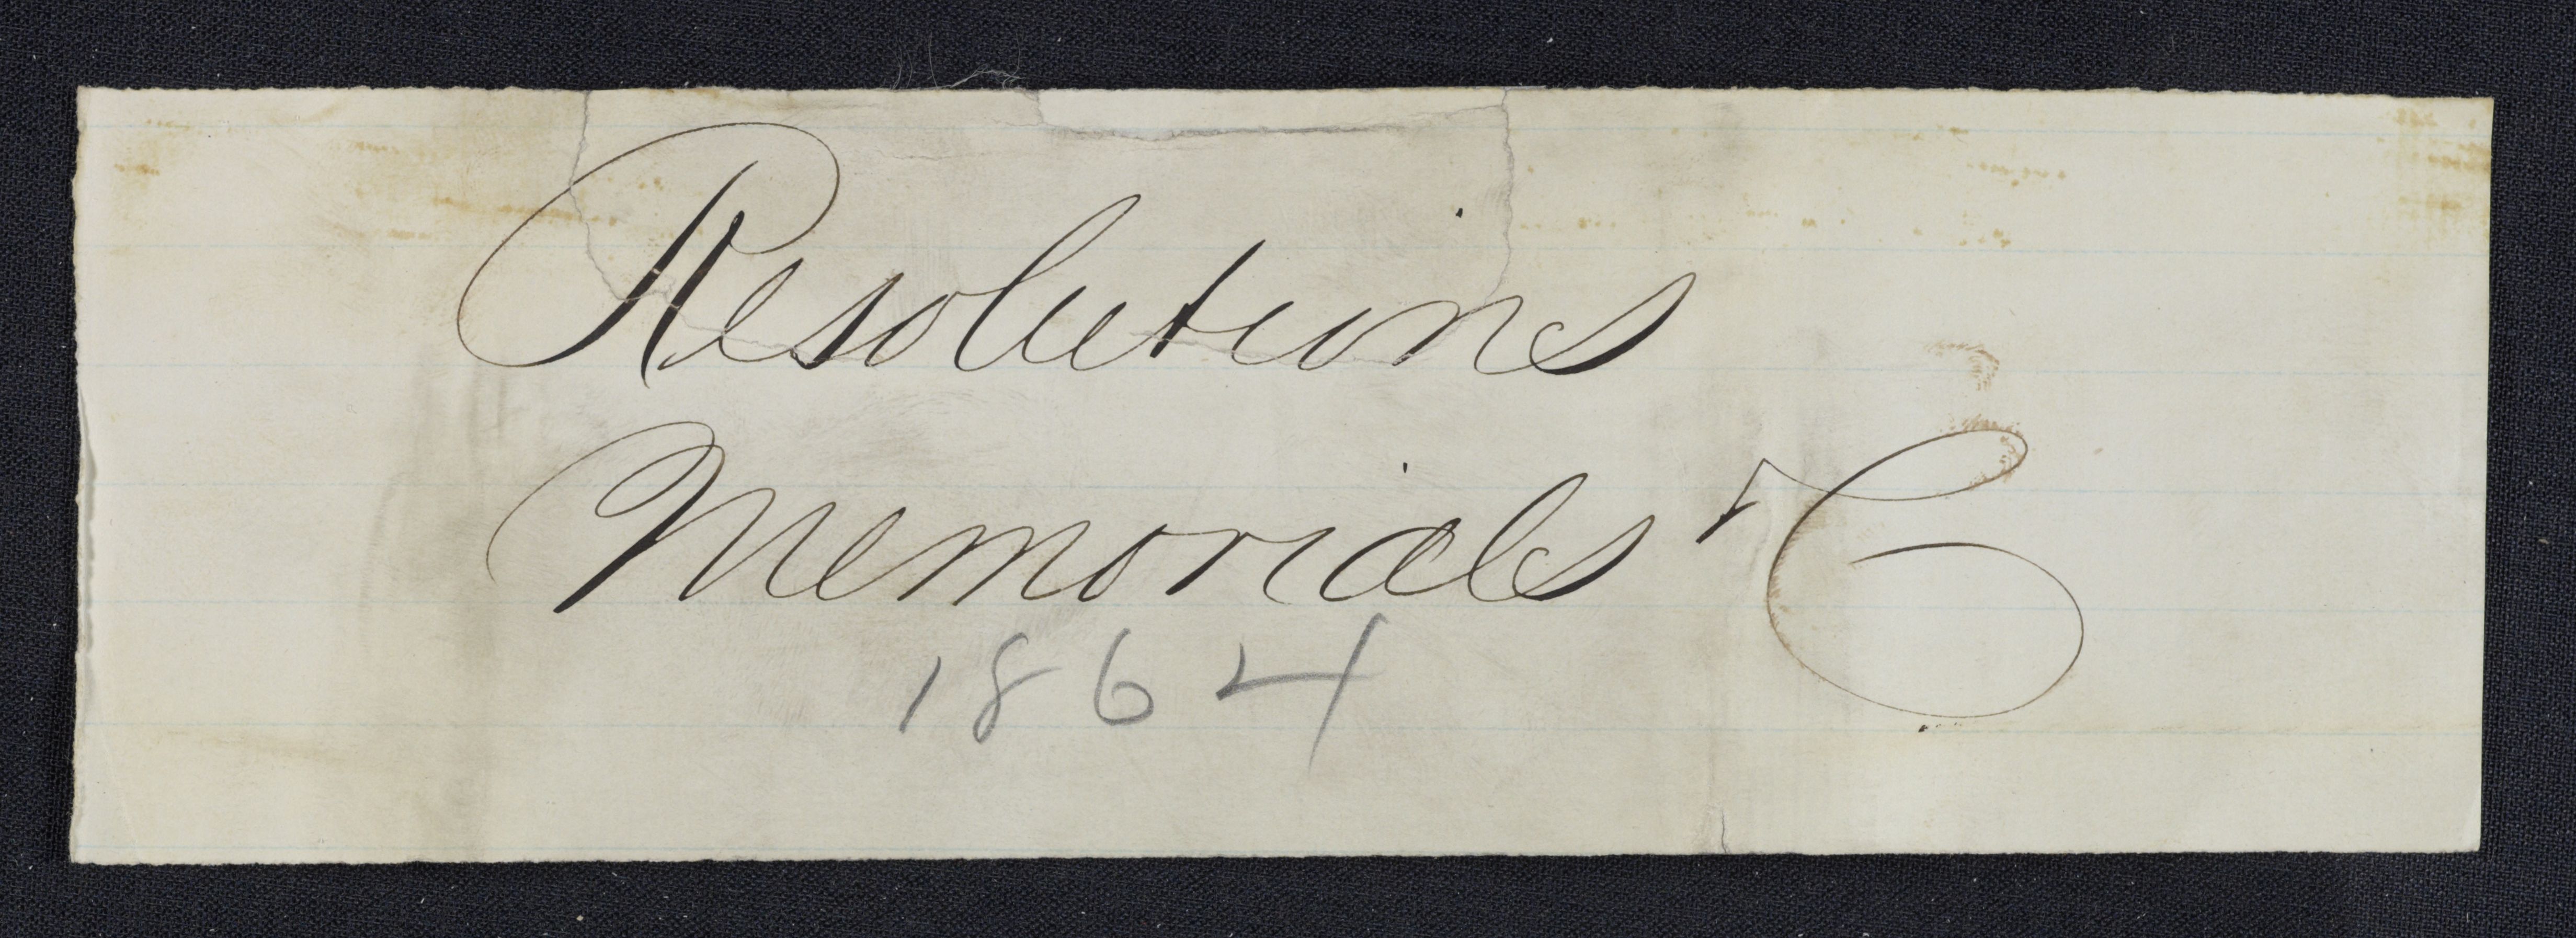 Resolutions
Memorials &C
1864